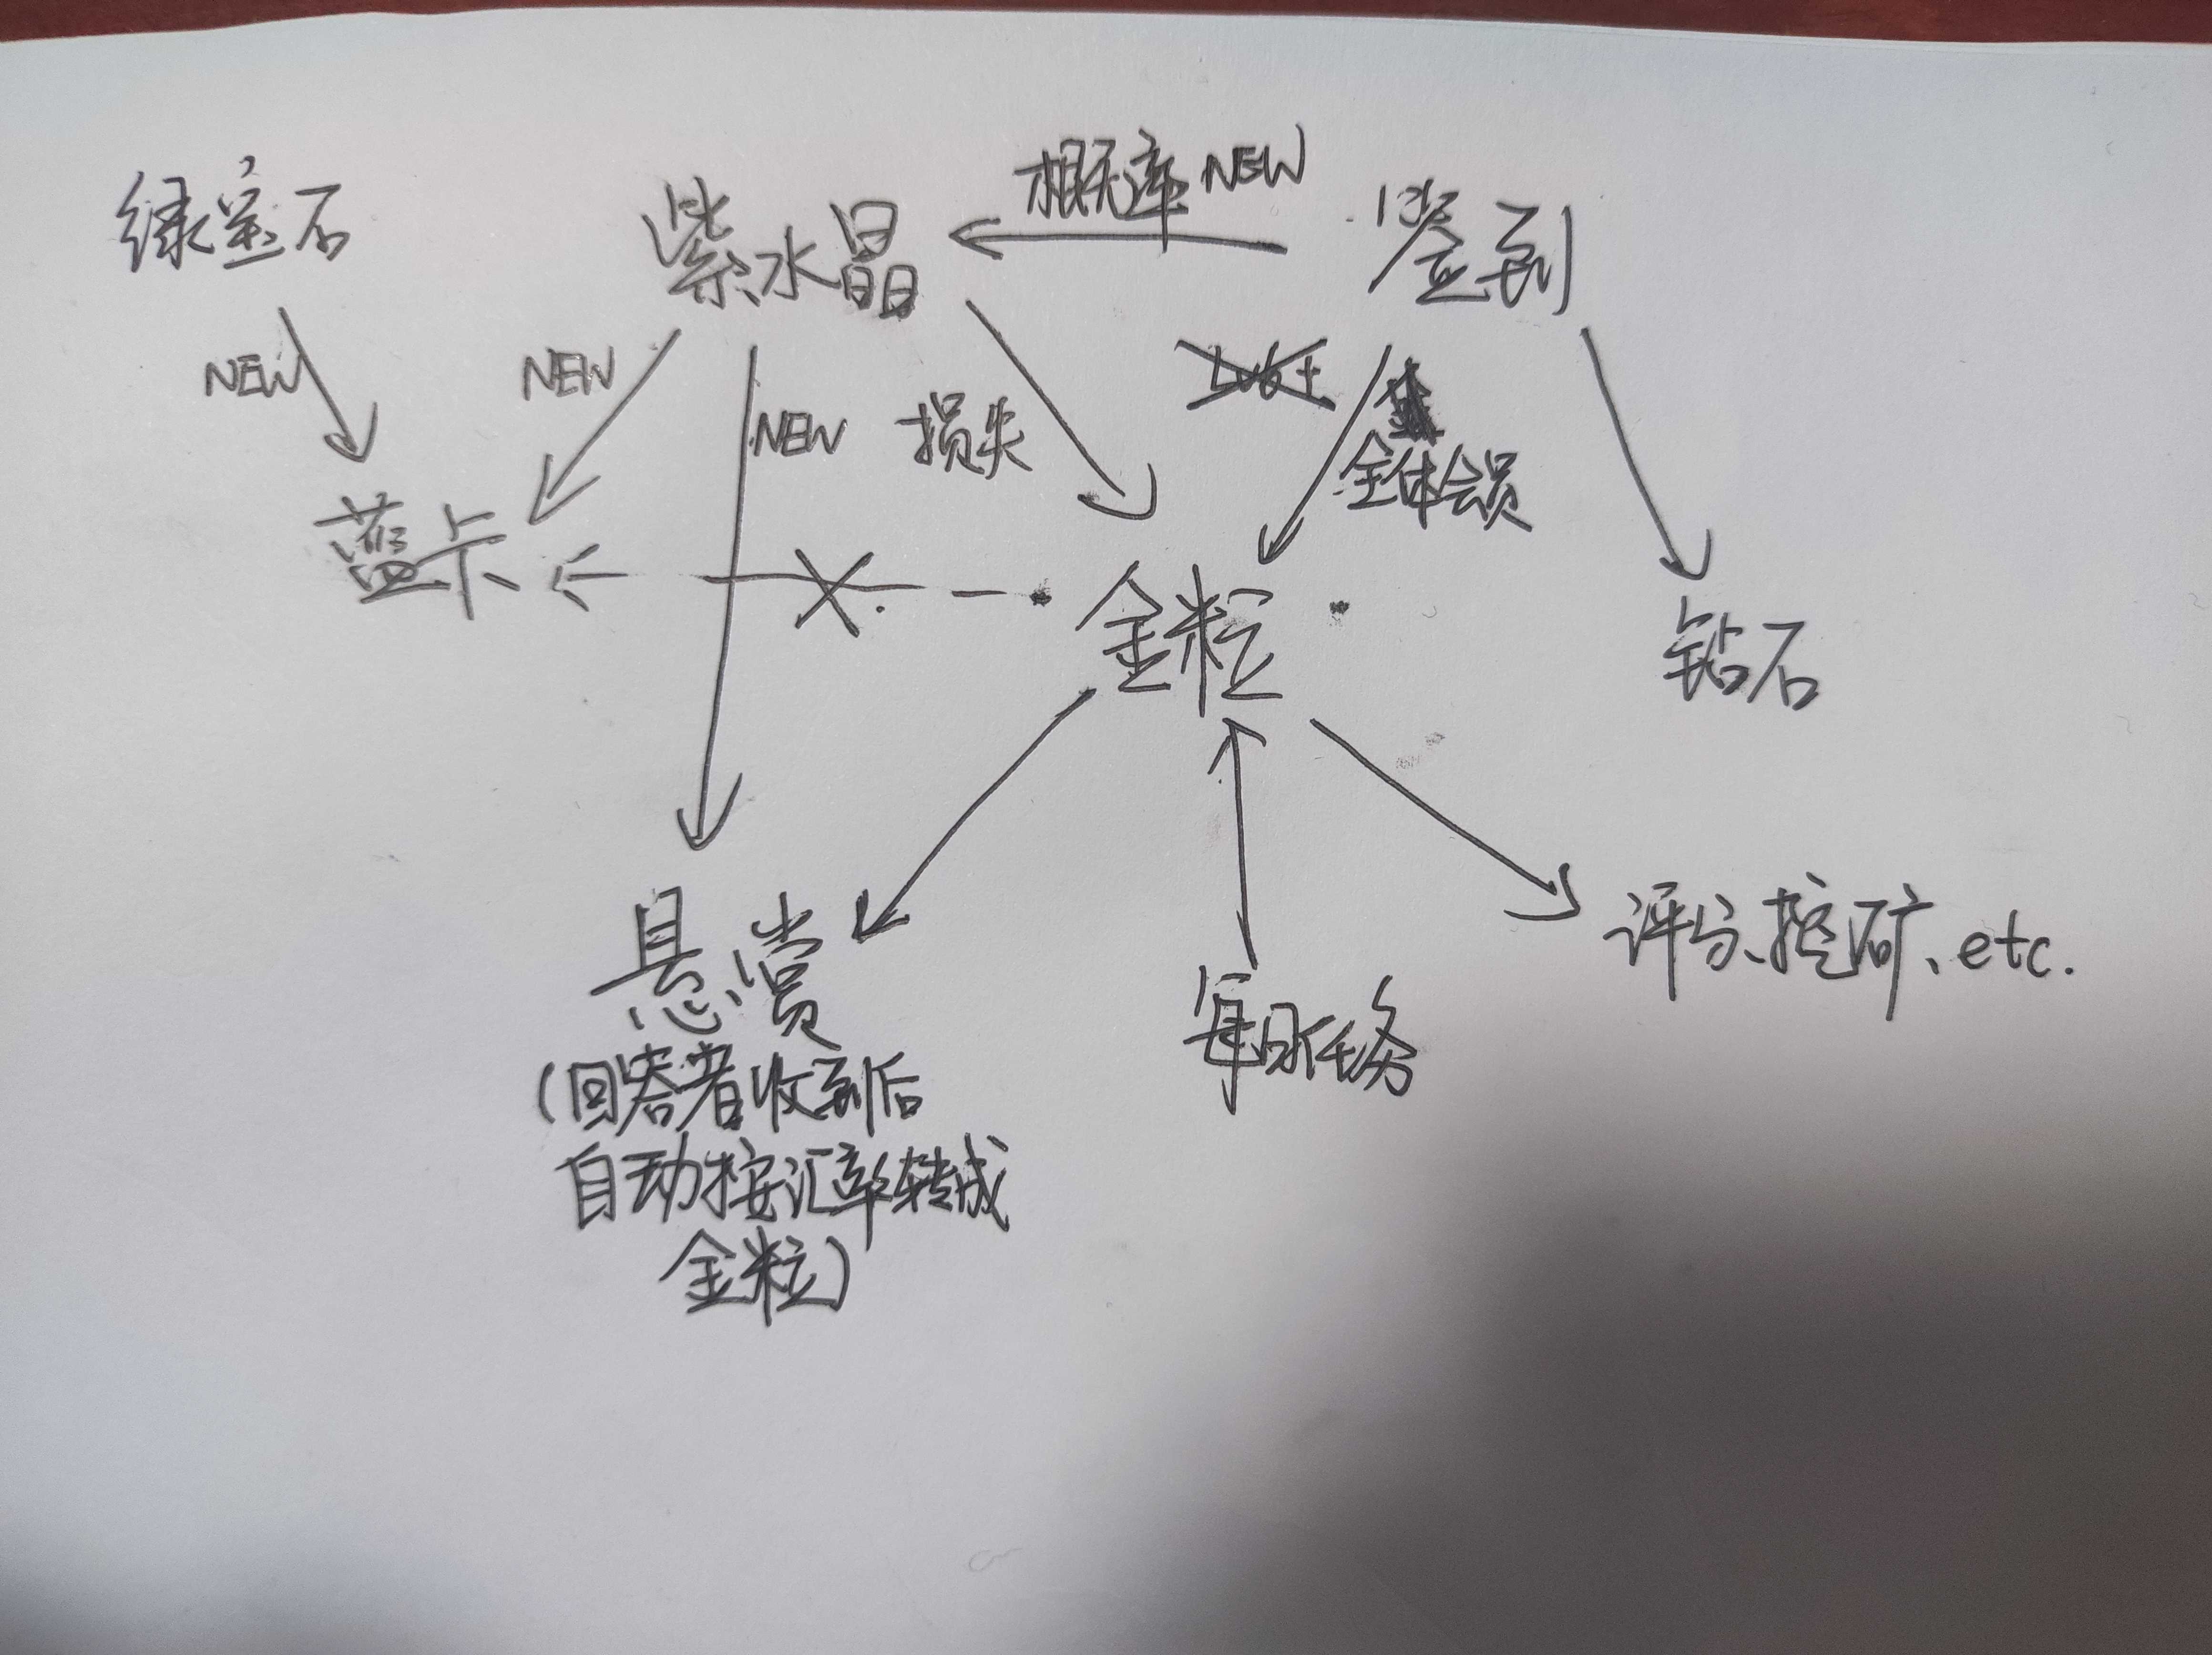 绿宝石
紫水晶
概率 NEW
签到
NEW
NEW
NEW
损失
全体会员
蓝卡
金粒
钻石
悬赏
(回答者收到后
自动按汇率转成
金粒)
每日任务
评分、挖矿、etc.